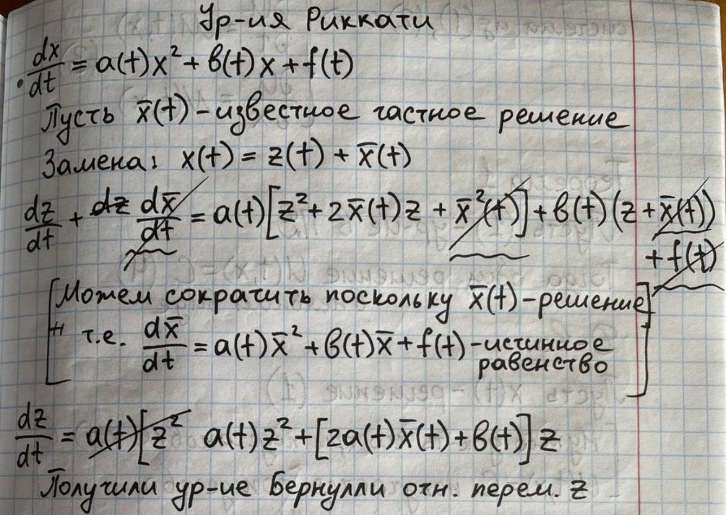 Ур-ия Риккати
dx/dt = a(t)x² + b(t)x + f(t)
Пусть x̄(t) - известное частное решение
Замена: x(t) = z(t) + x̄(t)
dz/dt + dz dx̄/dt = a(t)[z² + 2x̄(t)z + x̄²(t)] + b(t)(z + x̄(t))
+ f(t)
[Можем сократить поскольку x̄(t) - решение]
т.е. dx̄/dt = a(t)x̄² + b(t)x̄ + f(t) - истинное
равенство
dz/dt = a(t)[z² a(t)z² + [2a(t)x̄(t) + b(t)]z
Получили ур-ие Бернулли отн. перем. z